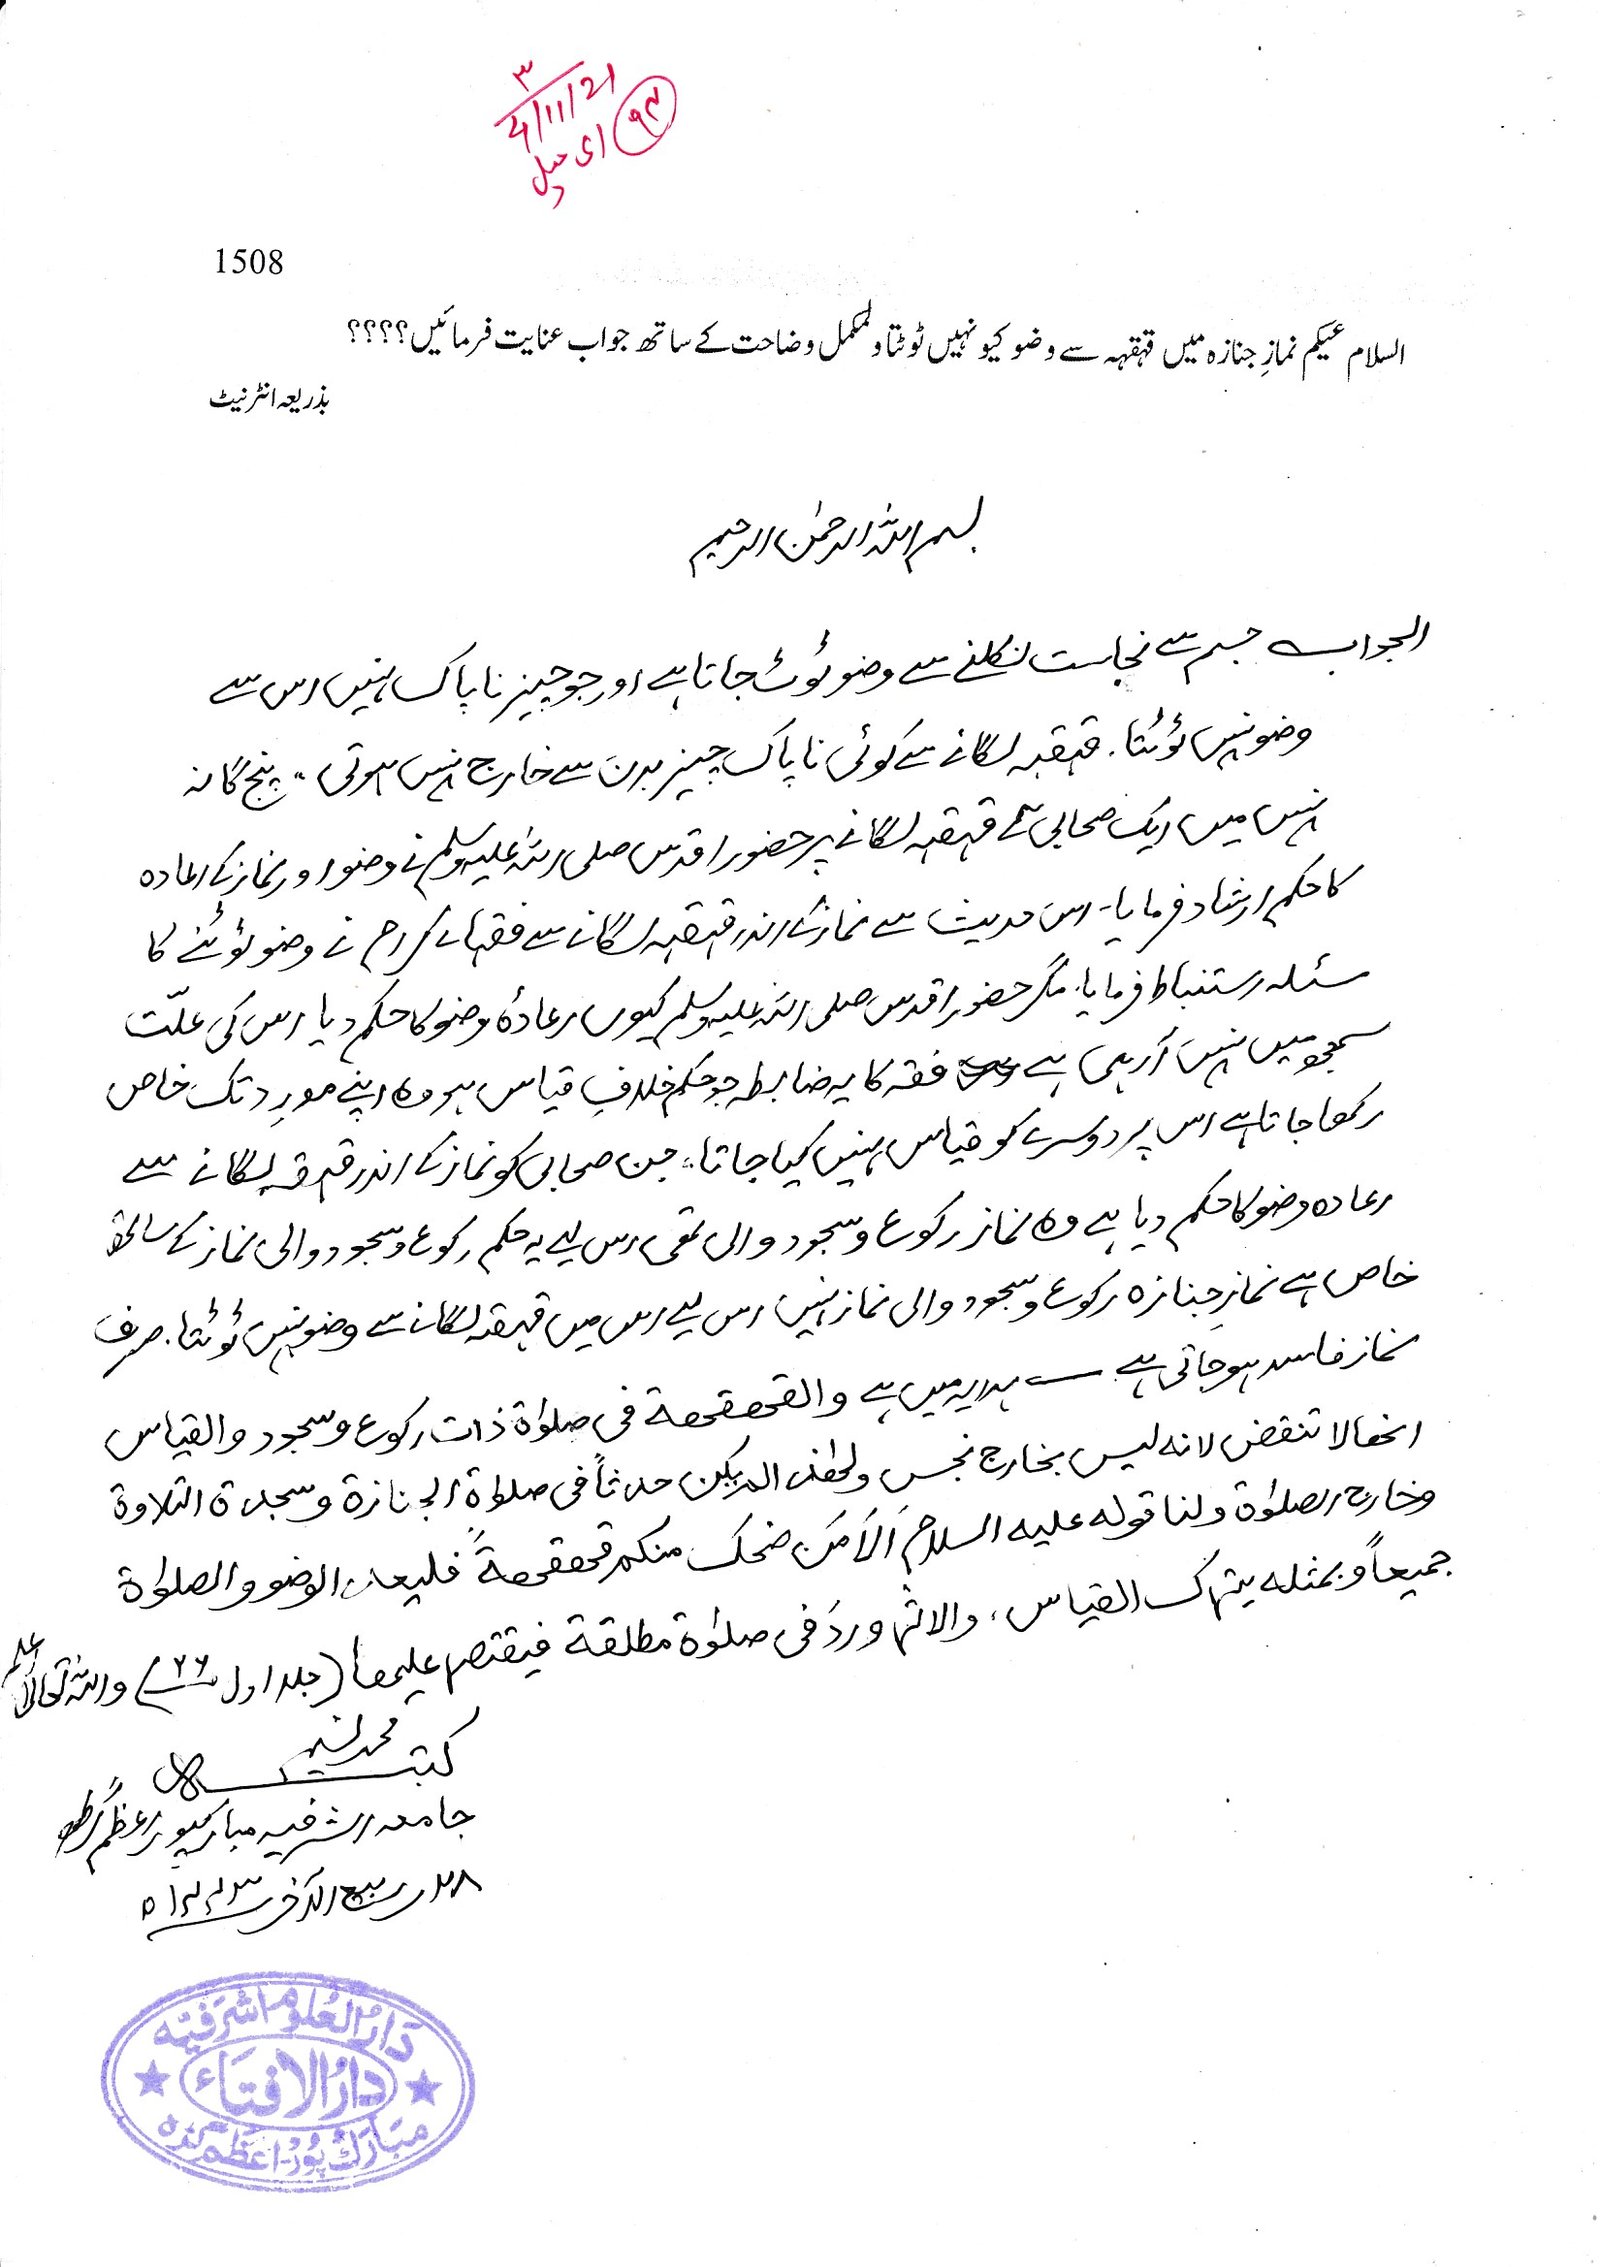 ۳
4/11/21
ای میل
۹۴
1508
السلام علیکم نمازِ جنازہ میں قہقہہ سے وضو کیو نہیں ٹوٹتا و مکمل وضاحت کے ساتھ جواب عنایت فرمائیں؟؟؟؟
بذریعہ انٹرنیٹ
بسم اللہ الرحمٰن الرحیم
الجواب جسم سے نجاست نکلنے سے وضو ٹوٹ جاتا ہے اور جو چیز ناپاک نہیں اس سے
وضو نہیں ٹوٹتا۔ قہقہہ لگانے سے کوئی ناپاک چیز بدن سے خارج نہیں ہوتی، پنج گانہ
میں ایک صحابی کے قہقہہ لگانے پر حضور اقدس صلی اللہ علیہ وسلم نے وضو اور نماز کے اعادہ
کا حکم ارشاد فرمایا۔ اس حدیث سے نماز کے اندر قہقہہ لگانے سے فقہاے کرام نے وضو ٹوٹنے کا
مسئلہ استنباط فرمایا۔ مگر حضور اقدس صلی اللہ علیہ وسلم کیوں اعادۂ وضو کا حکم دیا اس کی علّت
سمجھ میں نہیں آرہی ہے فقہ کا یہ ضابطہ جو حکم خلافِ قیاس ہو وہ اپنے مورد تک خاص
رکھا جاتا ہے اس پر دوسرے کو قیاس نہیں کیا جاتا، جن صحابی کو نماز کے اندر قہقہہ لگانے سے
اعادہ وضو کا حکم دیا ہے وہ نماز رکوع و سجود والی تھی اس لیے یہ حکم رکوع و سجود والی نماز کے ساتھ
خاص ہے نمازِ جنازہ رکوع و سجود والی نماز نہیں اس لیے اس میں قہقہہ لگانے سے وضو نہیں ٹوٹتا۔ صرف
نماز فاسد ہو جاتی ہے ہدایہ میں ہے والقھقھة فی صلوٰة ذات رکوع و سجود والقیاس
انھا لا تنقض لانہ لیس بخارج نجس ولھٰذا لم یکن حدثاً فی صلوٰة الجنازة وسجدة التلاوة
وخارج الصلوٰة ولنا قولہ علیہ السلام اَلَا مَن ضحک منکم قھقھةً فلیعد الوضو والصلوٰة
جمیعاً وبمثلہ یترک القیاس، والاثر وردَ فی صلوٰة مطلقة فیقتصر علیھا (جلد اول ) واللہ تعالیٰ اعلم
محمد نسیم
کتبہ
جامعہ اشرفیہ مبارکپور اعظم گڑھ
۲۸ ربیع الآخر ۱۴۴۳ھ
دارُ العُلوم اشرفیہ
دارُ الافتاء
مبارک پُور۔ اعظم گڑھ